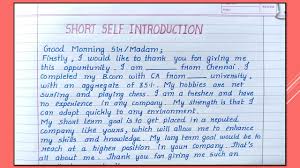 SHORT SELF INTRODUCTION
Good Morning Sir/Madam;
Firstly, I would like to thank you for giving me
this opportunity. I am ______ from Chennai. I
completed my B.com with CA from ______ university,
with an aggregate of 85%. My hobbies are net
surfing and playing chess. I am a fresher and have
no experience in any company. My strength is that I
can adapt quickly to any environment.
My short term goal is to get placed in a reputed
company like yours, which will allow me to enhance
my skills and knowledge. My long term goal would be to
reach at a higher position in your company. That's
all about me. Thank you for giving me such an